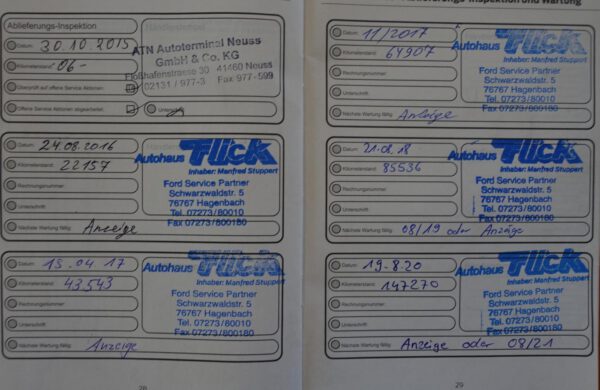 Ablieferungs-Inspektion
Datum: 30.10.2015
Kilometerstand: 06-
Überprüft auf offene Service Aktionen:
Offene Service Aktionen abgearbeitet:
Unterschrift:
Händlerstempel
ATN Autoterminal Neuss
GmbH & Co. KG
Floßhafenstrasse 30 41460 Neuss
02131 / 977-3 Fax 977-599
Datum: 24.08.2016
Kilometerstand: 22157
Rechnungsnummer:
Unterschrift:
Nächste Wartung fällig: Anzeige
Autohaus Flick
Inhaber: Manfred Stuppert
Ford Service Partner
Schwarzwaldstr. 5
76767 Hagenbach
Tel. 07273/80010
Fax 07273/800180
Datum: 13.04 17
Kilometerstand: 43543
Rechnungsnummer:
Unterschrift:
Nächste Wartung fällig: Anzeige
Autohaus Flick
Inhaber: Manfred Stuppert
Ford Service Partner
Schwarzwaldstr. 5
76767 Hagenbach
Tel. 07273/80010
Fax 07273/800180
28
Ablieferungs-Inspektion und Wartung
Datum: 11/2017
Kilometerstand: 64907
Rechnungsnummer:
Unterschrift:
Nächste Wartung fällig: Anzeige
Autohaus Flick
Inhaber: Manfred Stuppert
Ford Service Partner
Schwarzwaldstr. 5
76767 Hagenbach
Tel. 07273/80010
Fax 07273/800180
Datum: 21.08.18
Kilometerstand: 85536
Rechnungsnummer:
Unterschrift:
Nächste Wartung fällig: 08/19 oder Anzeige
Autohaus Flick
Inhaber: Manfred Stuppert
Ford Service Partner
Schwarzwaldstr. 5
76767 Hagenbach
Tel. 07273/80010
Fax 07273/800180
Datum: 19.8.20
Kilometerstand: 147270
Rechnungsnummer:
Unterschrift:
Nächste Wartung fällig: Anzeige oder 08/21
Autohaus Flick
Inhaber: Manfred Stuppert
Ford Service Partner
Schwarzwaldstr. 5
76767 Hagenbach
Tel. 07273/80010
Fax 07273/800180
29